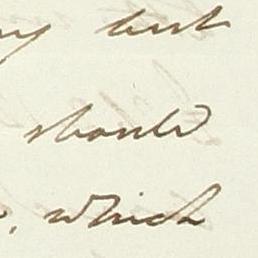 but
should
, which